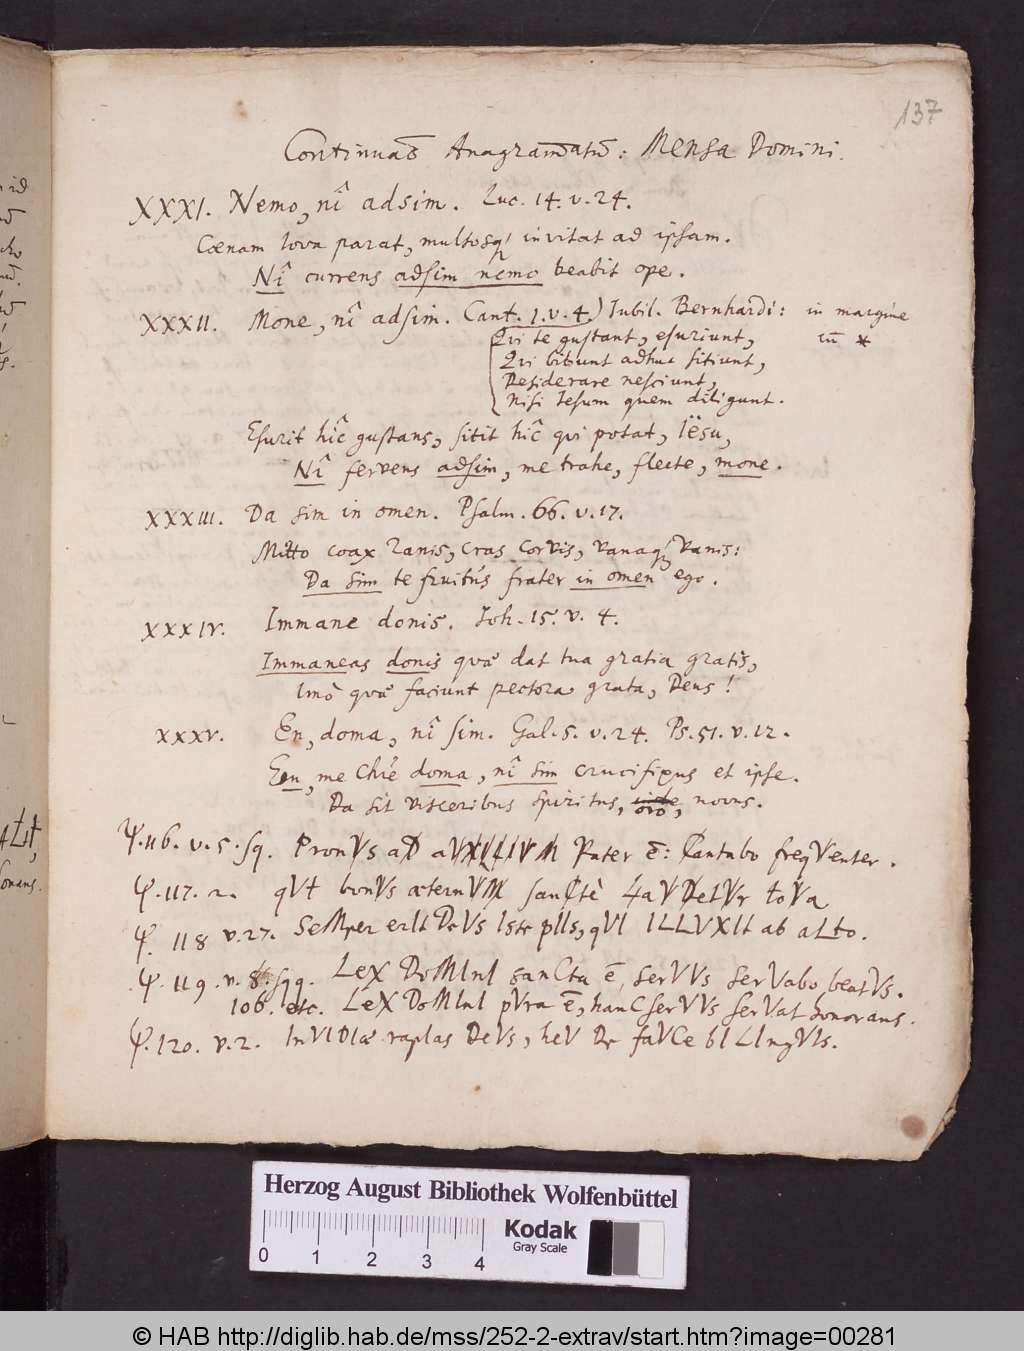 137
Continuaō Anagram̄atū: Mensa Domini.
XXXI. Nemo, nî adsim. Luc. 14. v. 24.
Cœnam Iova parat, multosq' invitat ad ipsam.
Nî currens adsim nemo beabit ope.
XXXII. Mone, nî adsim. Cant. 1. v. 4.) Iubil. Bernhardi: in margine
Qvi te gustant, esuriunt, cū *
Qvi bibunt adhuc sitiunt,
Desiderare nesciunt,
Nisi Iesum quem diligunt.
Esurit hîc gustans, sitit hîc qvi potat, Iësu,
Nî fervens adsim, me trahe, flecte, mone.
XXXIII. Da sim in omen. Psalm. 66. v. 17.
Mitto coax ranis, cras corvis, vanaq' vanis:
Da sim te fruitús frater in omen ego.
XXXIV. Immane donis. Joh. 15. v. 4.
Immaneas donis quæ dat tua gratia gratis,
Imò quæ faciunt pectora grata, Deus!
XXXV. En, doma, nî sim. Gal. 5. v. 24. Ps. 51. v. 12.
En, me Chr̄e doma, nî sim crucifixus et ipse.
Da sit visceribus spiritus, oro, novus.
Ψ. 116. v. 5. sq. PronVs aD aVXILIVM Pater ē: Cantabo freqVenter.
Ψ. 117. 2. qVt bonVs æternVM sanCtè LaVDetVr
Ψ. 118 v. 27. SeMper erIt DeVs Iste pIIs, qVI ILLVXIt ab aLto.
Ψ. 119. v. 8. sqq. LeX DoMInI sanCta ē, serVVs serVabo beatVs.
106. etc. LeX DoMInI pVra ē, hanC serVVs serVat honorans.
Ψ. 120. v. 2. InVIDIæ rapIas DeVs, heV De faVCe bILIngVIs.
Herzog August Bibliothek Wolfenbüttel
Kodak
Gray Scale
0 1 2 3 4
© HAB http://diglib.hab.de/mss/252-2-extrav/start.htm?image=00281